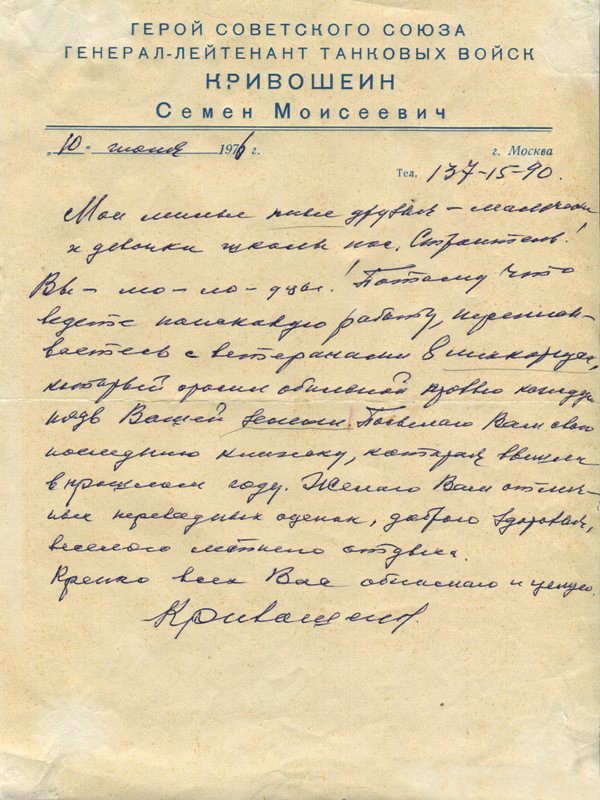 ГЕРОЙ СОВЕТСКОГО СОЮЗА
ГЕНЕРАЛ-ЛЕЙТЕНАНТ ТАНКОВЫХ ВОЙСК
КРИВОШЕИН
Семен Моисеевич
„10“ июня 1976 г. г. Москва
Тел. 137-15-90.
Мои милые юные друзья – мальчики
и девочки школы пос. Строитель!
Вы – мо – ло – дцы! Потому что
ведете поисковую работу, переписы-
ваетесь с ветеранами 3 мехкорпуса,
который оросил обильной кровью каждую
пядь Вашей земли! Посылаю Вам свою
последнюю книжку, которая вышла
в прошлом году. Желаю Вам отлич-
ных переводных оценок, доброго здоровья,
веселого летнего отдыха.
Крепко всех Вас обнимаю и целую.
Кривошеин